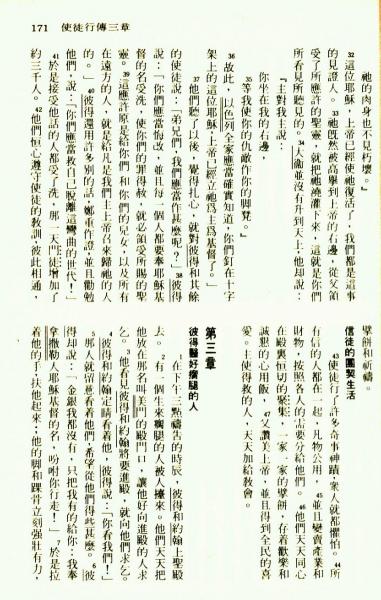 171　使徒行傳三章
祂的肉身也不見朽壞。』
32這位耶穌，上帝已經使祂復活了，我們都是這事
的見證人。33祂旣然被高舉到上帝的右邊，從父領
受了所應許的聖靈，就把祂澆灌下來，這就是你們
所看見所聽見的。34大衞並沒有升到天上，他却說：
『主對我主說：
你坐在我的右邊，
35等我使你的仇敵作你的脚凳。』
36故此，以色列全家應當確實知道，你們釘在十字
架上的這位耶穌，上帝已經立祂爲主爲基督了。」
37他們聽了以後，覺得扎心，就對彼得和其餘
的使徒說：「弟兄們，我們應當作甚麼呢？」38彼得
說：「你們應當悔改，並且每一個人都要奉耶穌基
督的名受洗，使你們的罪得赦，就必領受所賜的聖
靈。39這應許原是給你們，和你們的兒女，以及所有
在遠方的人，就是給凡是我們主上帝召來歸祂的人
的。」40彼得還用許多別的話，鄭重作證，並且勸勉
他們，說：「你們應當救自己脫離這彎曲的世代！」
41於是接受他話的人都受了洗，那一天門徒增加了
約三千人。42他們恒心遵守使徒的教訓，彼此相通，
擘餅和祈禱。
信徒的團契生活
43使徒行了許多奇事神蹟，衆人就都懼怕。44所
有信的人都在一起，凡物公用，45並且變賣產業和
財物，按照各人的需要分給他們。46他們天天同心
在殿裏恒切的聚集，一家一家的擘餅，存着歡樂和
誠懇的心用飯，47又讚美上帝，並且得到全民的喜
愛。主使得救的人，天天加給教會。
第三章
彼得醫好瘸腿的人
1在下午三點禱告的時辰，彼得和約翰上聖殿
去。2有一個生來瘸腿的人被人擡來。他們天天把
他放在那名叫美門的殿門口，讓他好向進殿的人求
乞。3他看見彼得和約翰將要進殿，就向他們求乞。
4彼得和約翰定睛看着他，彼得說：「你看我們！」
5那人就留意看着他們，希望從他們得些甚麼。6彼
得却說：「金銀我都沒有，只把我有的給你：我奉
拿撒勒人耶穌基督的名，吩咐你行走！」7於是拉
着他的手，扶他起來；他的脚和踝骨立刻强壯有力，